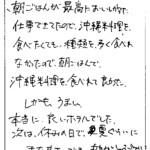 朝ごはんが最高においしかった。
仕事できてたので、沖縄料理を
食べたくても、種類を多く食べれ
なかたので、朝ごはんで、
沖縄料理を食べれて良かった。
しかも、うまい。
本当に、良いホテルでした。
次は、休みの日で、夏ぐらいに